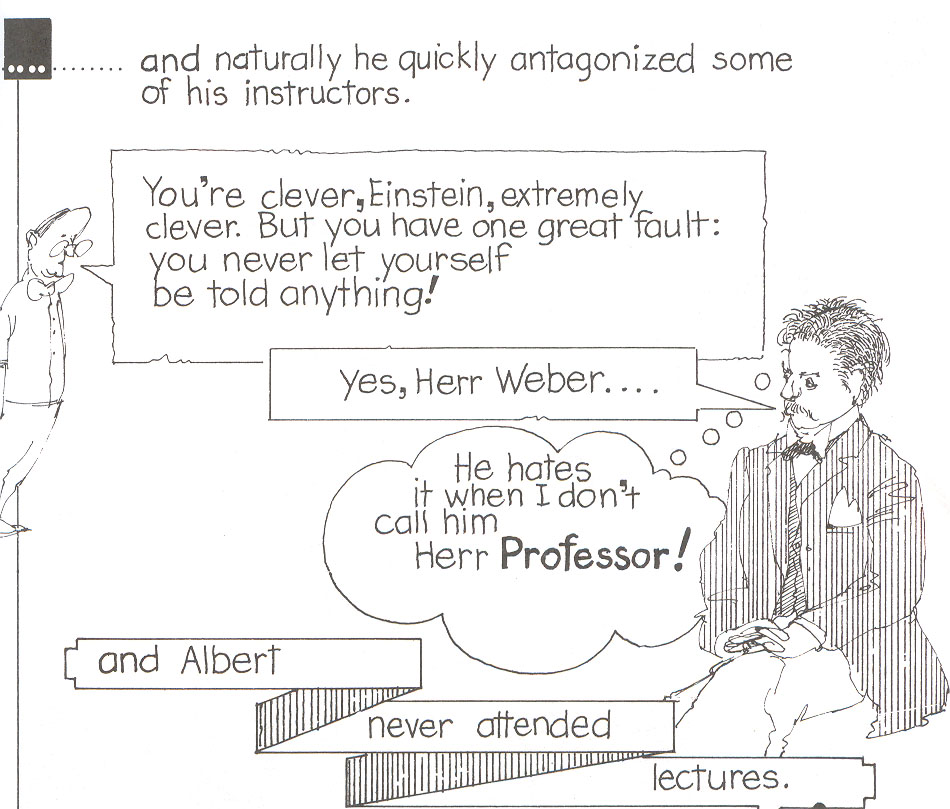 ........ and naturally he quickly antagonized some
of his instructors.
You're clever, Einstein, extremely
clever. But you have one great fault:
you never let yourself
be told anything!
Yes, Herr Weber....
He hates
it when I don't
call him
Herr Professor!
and Albert
never attended
lectures.